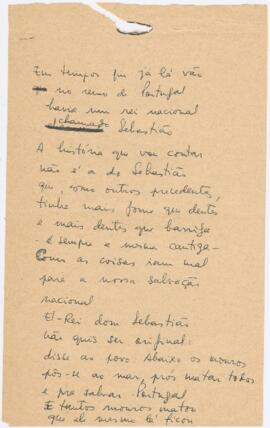 Em tempos que já lá vão
no reino de Portugal
havia um rei nacional
chamado Sebastião
A história que vou contar
não é a do Sebastião
que, como outros precedentes,
tinha mais fome que dentes
e mais dentes que barriga
- é sempre a mesma cantiga -
Com as coisas iam mal
para a nossa salvação
nacional
El-Rei dom Sebastião
não quis ser original:
disse ao povo Abaixo os mouros
pôs-se ao mar, prós matar todos
e pra salvar Portugal
E tantos mouros matou
que ele mesmo lá ficou